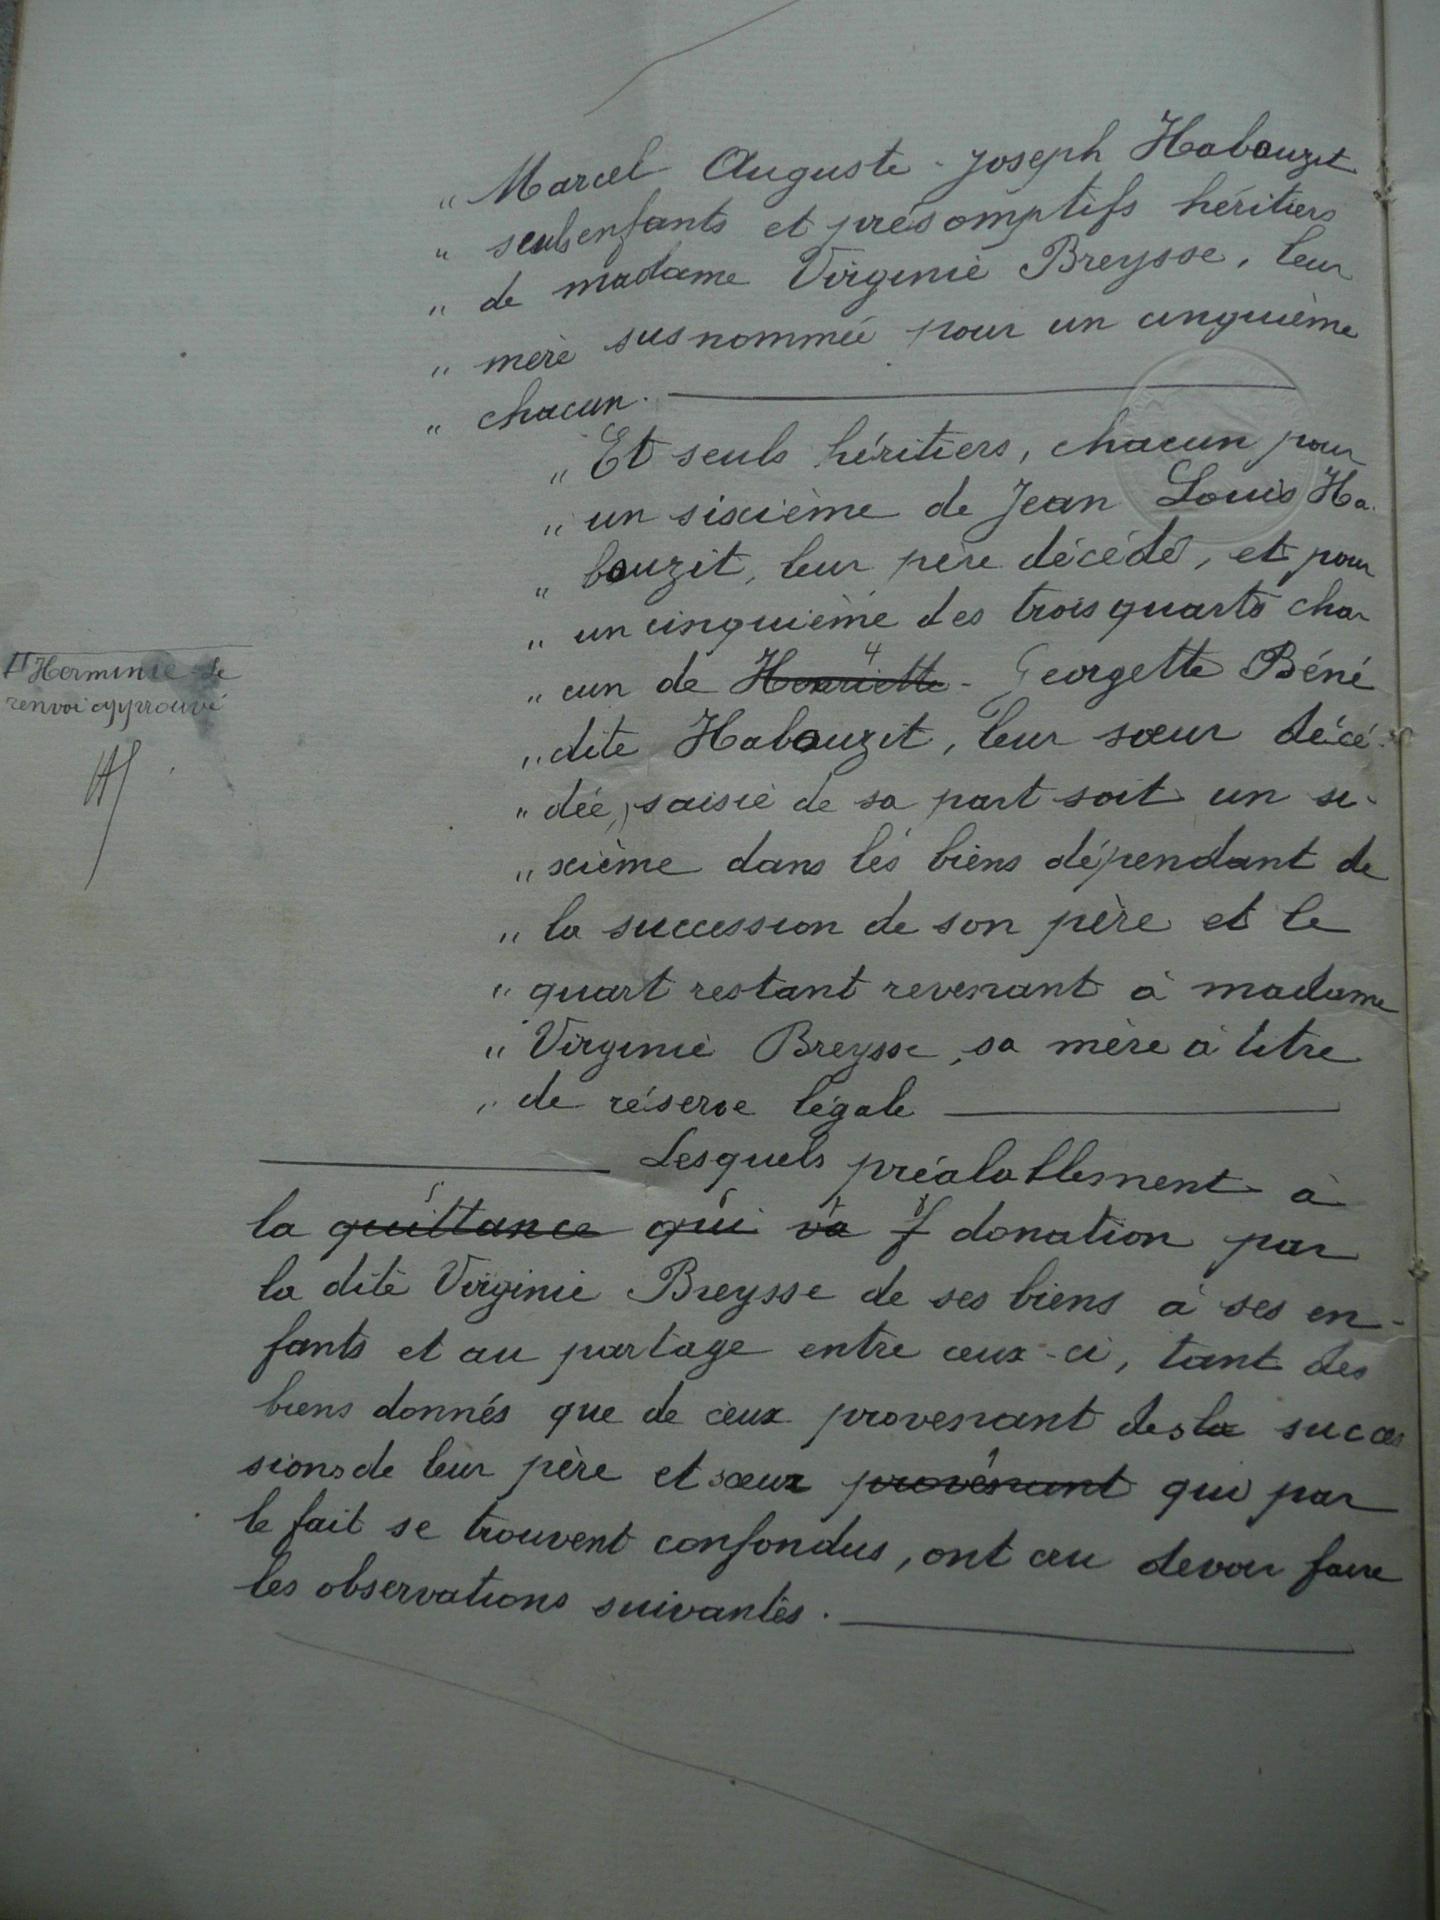 " Marcel Auguste-Joseph Habauzit
" seuls enfants et présomptifs héritiers
" de madame Virginie Breysse, leur
" mère sus nommée pour un cinquième
" chacun.
" Et seuls héritiers, chacun pour
" un sixième de Jean Louis Ha-
" bauzit, leur père décédé, et pour
" un cinquième des trois quarts cha
" cun de Henriette - Georgette Béné
4
" dite Habauzit, leur sœur décé-
" dée, saisie de sa part soit un si-
" xième dans les biens dépendant de
" la succession de son père et le
" quart restant revenant à madame
" Virginie Breysse, sa mère à titre
" de réserve légale
Lesquels préalablement à
la quittance qui va f donation par
la dite Virginie Breysse de ses biens à ses en-
fants et au partage entre ceux-ci, tant des
biens donnés que de ceux provenant des la succes
sions de leur père et sœur provenant qui par
le fait se trouvent confondus, ont cru devoir faire
les observations suivantes.
Herminie Le
renvoi approuvé